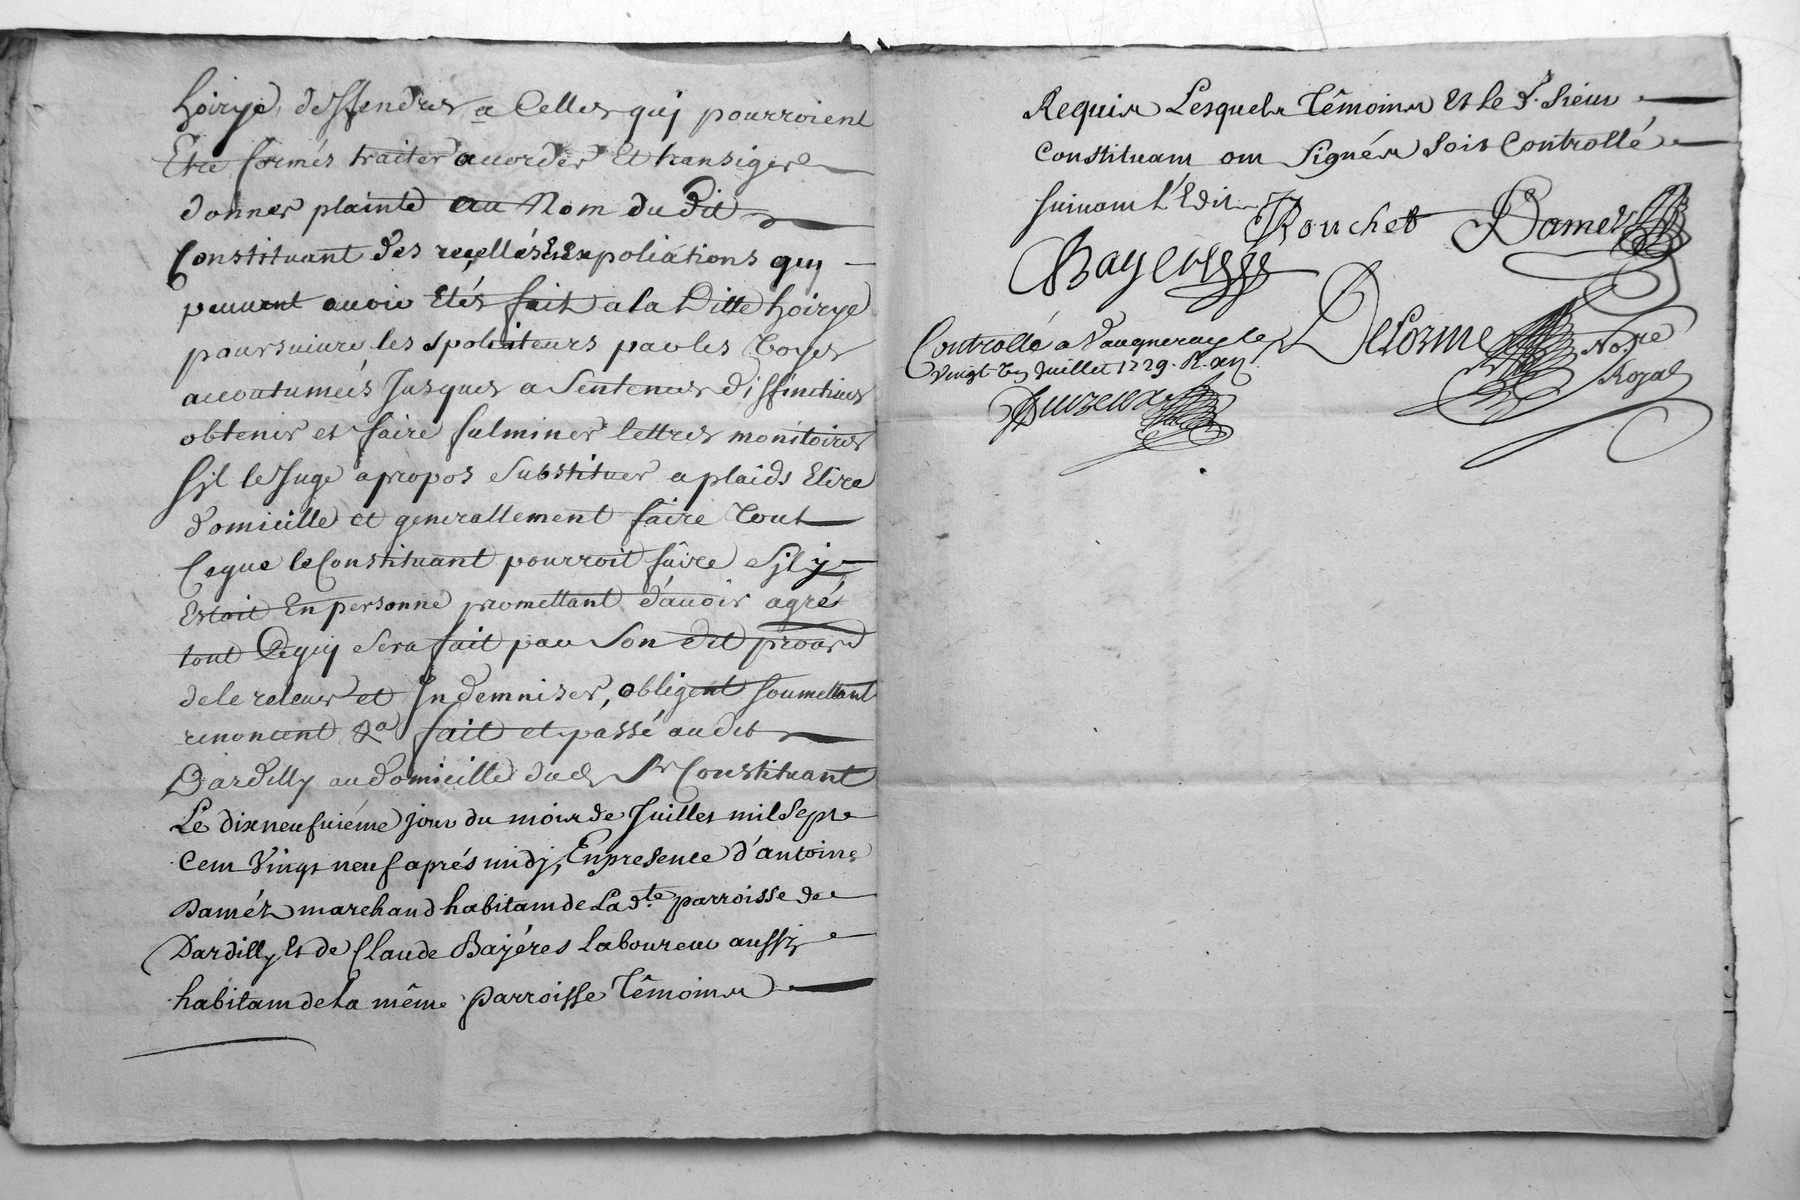 hoirye, deffendre a Celles quy pourroient
Etre formés traiter accorder Et transiger
donner plainte au Nom du dit
Constituant des recellés Et Expoliations quy
peuvent avoir Etés fait a la Ditte hoirye
poursuivre les spoliateurs par les voyes
accoutumées Jusques a Sentences diffinitives
obtenir et faire fulminer lettres monitoires
Sil le Juge apropos substituer a plaids Elire
domicille et generallement faire tout
Ceque le Constituant pourroit faire sil y
Estoit En personne promettant d'avoir agré
tout Cequy sera fait par son dit procur
de le relever et Indemniser, obligent soumettant
renoncent &a fait et passé audit
Dardilly au domicille dud Sr Constituant
Le dixneufuiéme jour du mois de Juillet mil Sept
Cent Vingt neuf aprés midj, En presence d'antoine
Damét marchand habitant de La dte parroisse de
Dardilly Et de Claude Bajéres Laboureur aussj
habitant de La même parroisse Têmoins
Requis Lesquels Têmoins Et le d. Sieur
Constituant ont Signés Soit Controllé
suivant L'Edit Rouchet Damet
Bayeres
Delorme No.re
Royal
Controllé a Vaugneray le
vingt Juillet 1729. R.